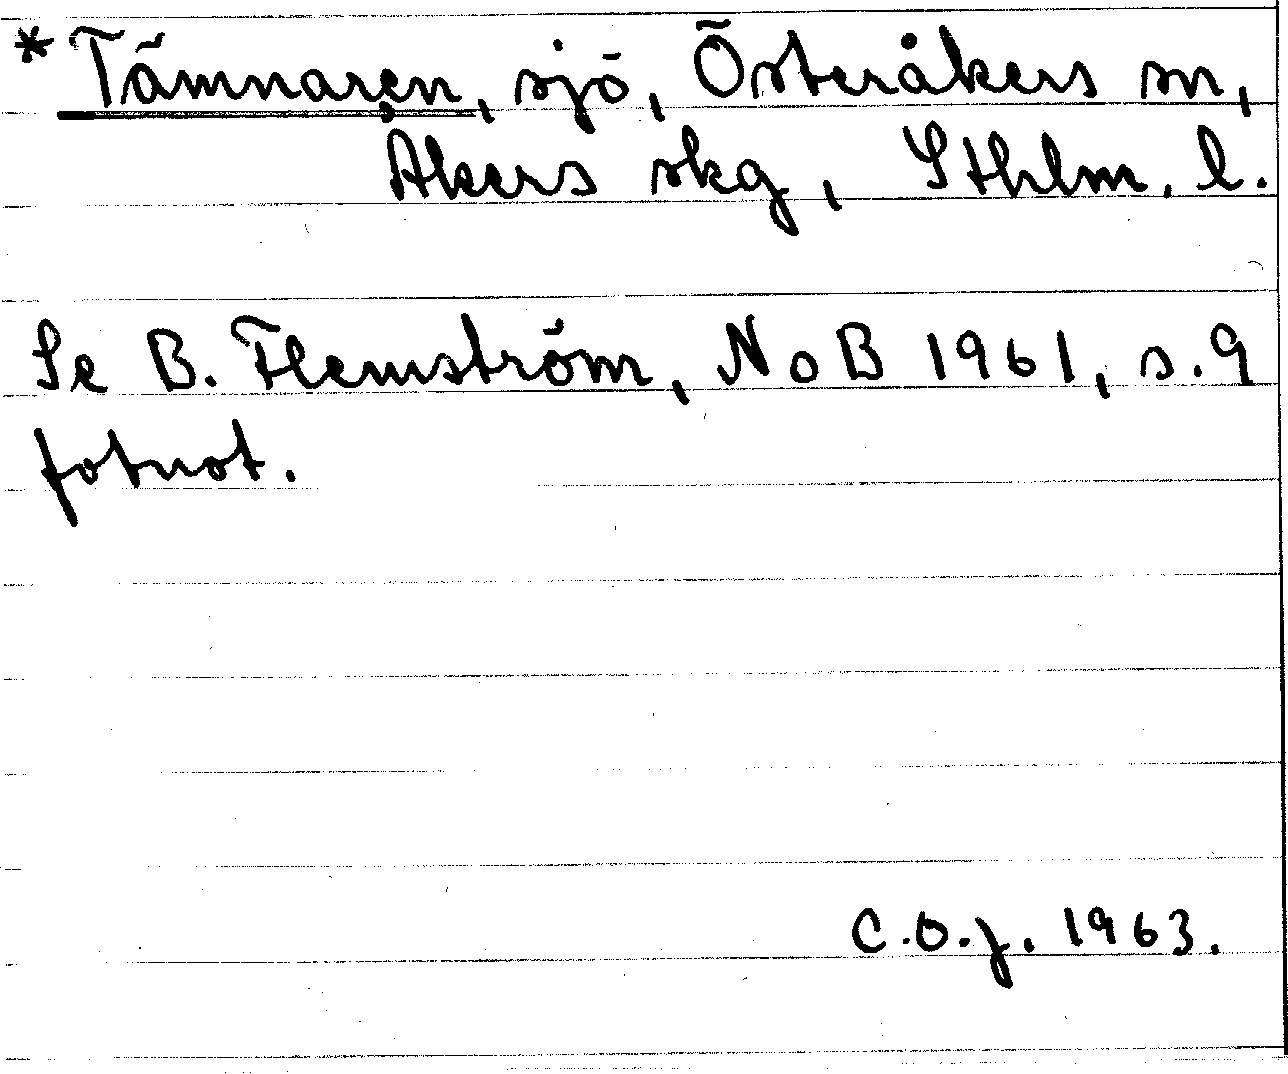 *Tämnaren, sjö, Österåkers sn,
Åkers skg, Sthlm. l.
Se B. Flemström, NoB 1961, s. 9
fotnot.
C.O.J. 1963.